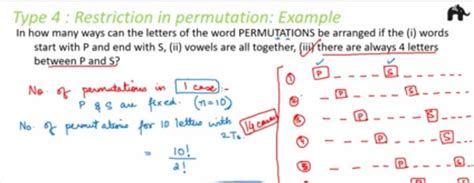 Type 4 : Restriction in permutation: Example
In how many ways can the letters of the word PERMUTATIONS be arranged if the (i) words
start with P and end with S, (ii) vowels are all together, (iii) there are always 4 letters
between P and S?
No. of permutations in 1 case :-
P & S are fixed. (n=10)
No. of permutations for 10 letters with
2Ts
14 cases
= 10!
2!
① P _ _ _ _ S _ _ _ _ _ _
② _ P _ _ _ _ S _ _ _ _ _
③ _ _ P _ _ _ _ S _ _ _ _
④ _ _ _ P _ _ _ _ S _ _ _
⑤ _ _ _ _ P _ _ _ _ S _ _
P S